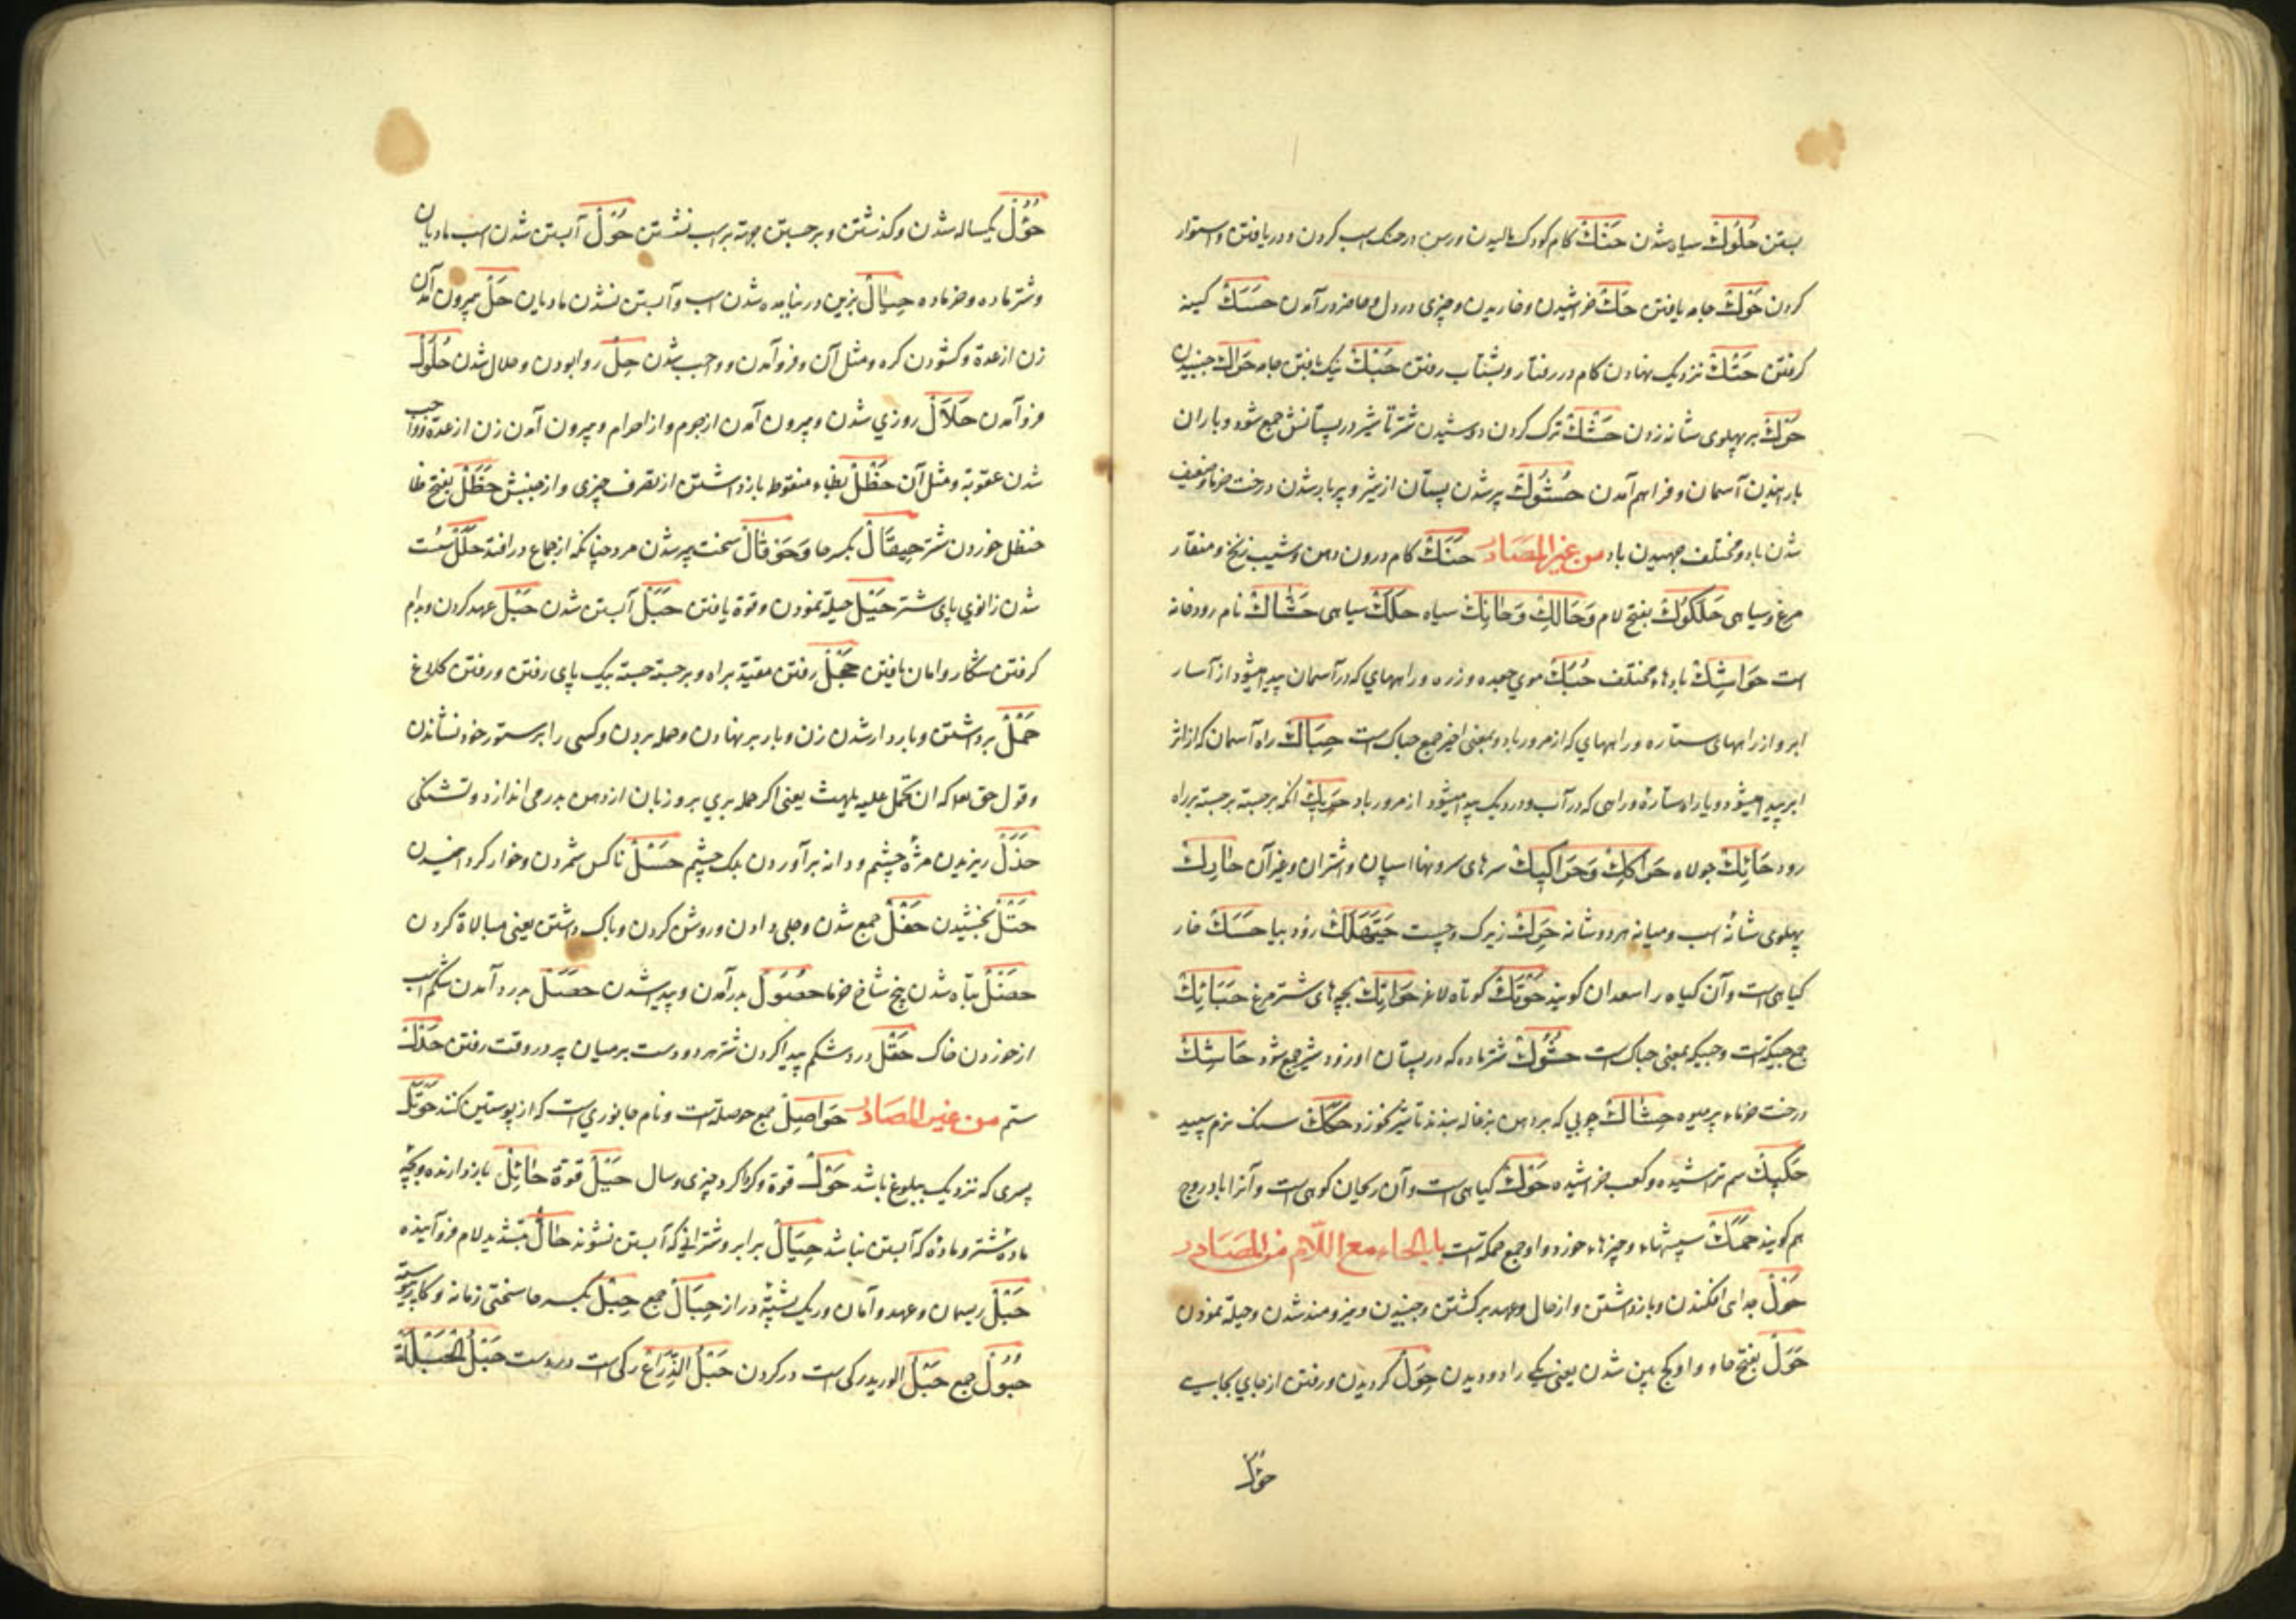 بستن حُلُوك سیاه شدن حَنْك کام کودک مالیدن ورسن در حنک اسب کردن و دریافتن و استوار
کردن حَوْك جامه بافتن حَكّ خراشیدن و خاریدن و چیزی در دل و خاطر درآمدن حَسَك کینه
کرفتن حَتْك نزدیک نهادن کام در رفتار و بشتاب رفتن حَبْك نیک بافتن جامه حَرَاك جنبیدن
حَرْك بر پهلوی شانه زدن حَشْك ترک کردن دوشیدن شتر تا شیر در پستانش جمع شود و باران
بارانیدن آسمان و فراهم آمدن حُشُوك پر شدن پستان از شیر و پربار شدن درخت خرما و ضعیف
شدن باد و مختلف جهیدن باد من غیر المصادر حَنَك کام درون دهن و شیب زنخ و منقار
مرغ و سیاهی حَلَكُوك بفتح لام وَحَالِك وَحَانِك سیاه حَلَك سیاهی حَشَّاك نام رودخانه
است حَوَاشِك بادهاء مختلف حُبُك موی جعده و زره و راههای که در آسمان پیدا میشود از آسار
ابر و از راههای ستاره و راههای که از مرور باد و بمعنی اخیر جمع حباک است حِبَاك راه آسمان که از اثر
ابر پیدا میشود و یا راه ستاره و راهی که در آب و در ریک پیدا میشود از مرور باد آنکه برجسته برجسته براه
رود حَائِك جولاه حَرَاكِك وَحَرَاكِيك سرهای سرونها اسپان و اشتران و غیر آن حَارِك
پهلوی شانه اسب و میانه هر دو شانه حَرِك زیرک و چست حَيَّهَلَك زود بیا حَسَك خار
کیاهی است و آن کیاه را سعدان کویند حَوْتَك کوتاه لاغر حَوَاتِك بچه‌های شترمرغ حَبَائِك
جمع حبیکه است و حبیکه بمعنی حباک است حَشُوك شتر ماده که در پستان او زود شیر جمع شود حَاشِك
درخت خرماء پرمیوه حِشَاك چوبی که بر دهن بزغاله بندند تا شیر نخورد حَكَك سنک نرم سپید
حَكِيك سم تراشیده و کعب خراشیده حَوْك کیاهی است و آن ریحان کوهی است و آنرا بادروج
هم کویند حَمَك سپشهاء و چیزهاء خورد و او جمع حمکه است باب الحاء مع اللام من المصادر
حَوْل جدایی افکندن و بازداشتن و از حال و عهد برکشتن و جنبیدن و نیرومند شدن و حیله نمودن
حَوَل بفتح حاء و واو کج بین شدن یعنی یکی را دو دیدن حِوَل کردیدن و رفتن از جای بجایی
حؤل
حُؤُل یکساله شدن و کذشتن و برجستن جهته بر اسب نشستن حُوَل آبستن شدن اسب مادیان
و شتر ماده و خر ماده حِيَال بزین در نیامده شدن اسب و آبستن نشدن مادیان حَلّ بیرون آمدن
زن از عدة و کشودن کره و مثل آن و فرو آمدن و واجب شدن حِلّ روا بودن و حلال شدن حُلُول
فرو آمدن حَلَال روزی شدن و بیرون آمدن از جرم و از احرام و بیرون آمدن زن از عدة و واجب
شدن عقوبة و مثل آن حَظْل بظاء منقوط بازداشتن از تصرف چیزی و از جنبش حَظَل بفتح ظا
حنظل خوردن شتر حِيقَال بکسر حا وَحَوقَال سخت پیر شدن مرد چنانکه از جماع در افتد حَلَل سست
شدن زانوی پای شتر حَيْل حیله نمودن و قوة یافتن حَبَل آبستن شدن حَبْل عهد کردن و بدام
کرفتن شکار و امان یافتن حَجْل رفتن مقید براه و برجسته جسته بیک پای رفتن و رفتن کلاغ
حَمْل برداشتن و باردار شدن زن و بار برنهادن و حمله بردن و کسی را بر ستور خود نشاندن
و قول حق تعالی که ان تحمل علیه یلهث یعنی اکر حمله بری برو زبان از دهن بدر می‌اندازد و تشنکی
حَذَل ریزیدن مژه چشم و دانه برآوردن پلک چشم حَسْل ناکس شمردن و خوار کردانیدن
حَتْل بخشیدن حَفْل جمع شدن و جلی دادن و روشن کردن و باک داشتن یعنی مبالاة کردن
حَصَل تباه شدن بیخ شاخ خرما حُصُول بدر آمدن و پیدا شدن حَصَل بدرد آمدن شکم اسب
از خوردن خاک حَقَل درد شکم پیدا کردن شتر هر دو دست بر میان پر در وقت رفتن حَدْل
ستم من غیر المصادر حَوَاصِل جمع حوصله است و نام جانوری است که از پوستین کنند حَوْتَل
پسری که نزدیک ببلوغ باشد حَوْل قوة و کرداکرد چیزی و سال حَيْل قوة حَائِل بازدارنده و بچه
ماده شتر و ماده که آبستن نباشد حِيَال برابر و شترانی که آبستن نشوند حَالّ بتشدید لام فرو آینده
حَبْل ریسمان و عهد و امان و ریک پشته دراز حِبَال جمع حِبْل بکسر حا سختی زمانه و کار پیوسته
حُبُول جمع حَبْل الورید رکی است در کردن حَبْل الذِّرَاع رکی است در دست حَبَلُ الْحَبَلَة